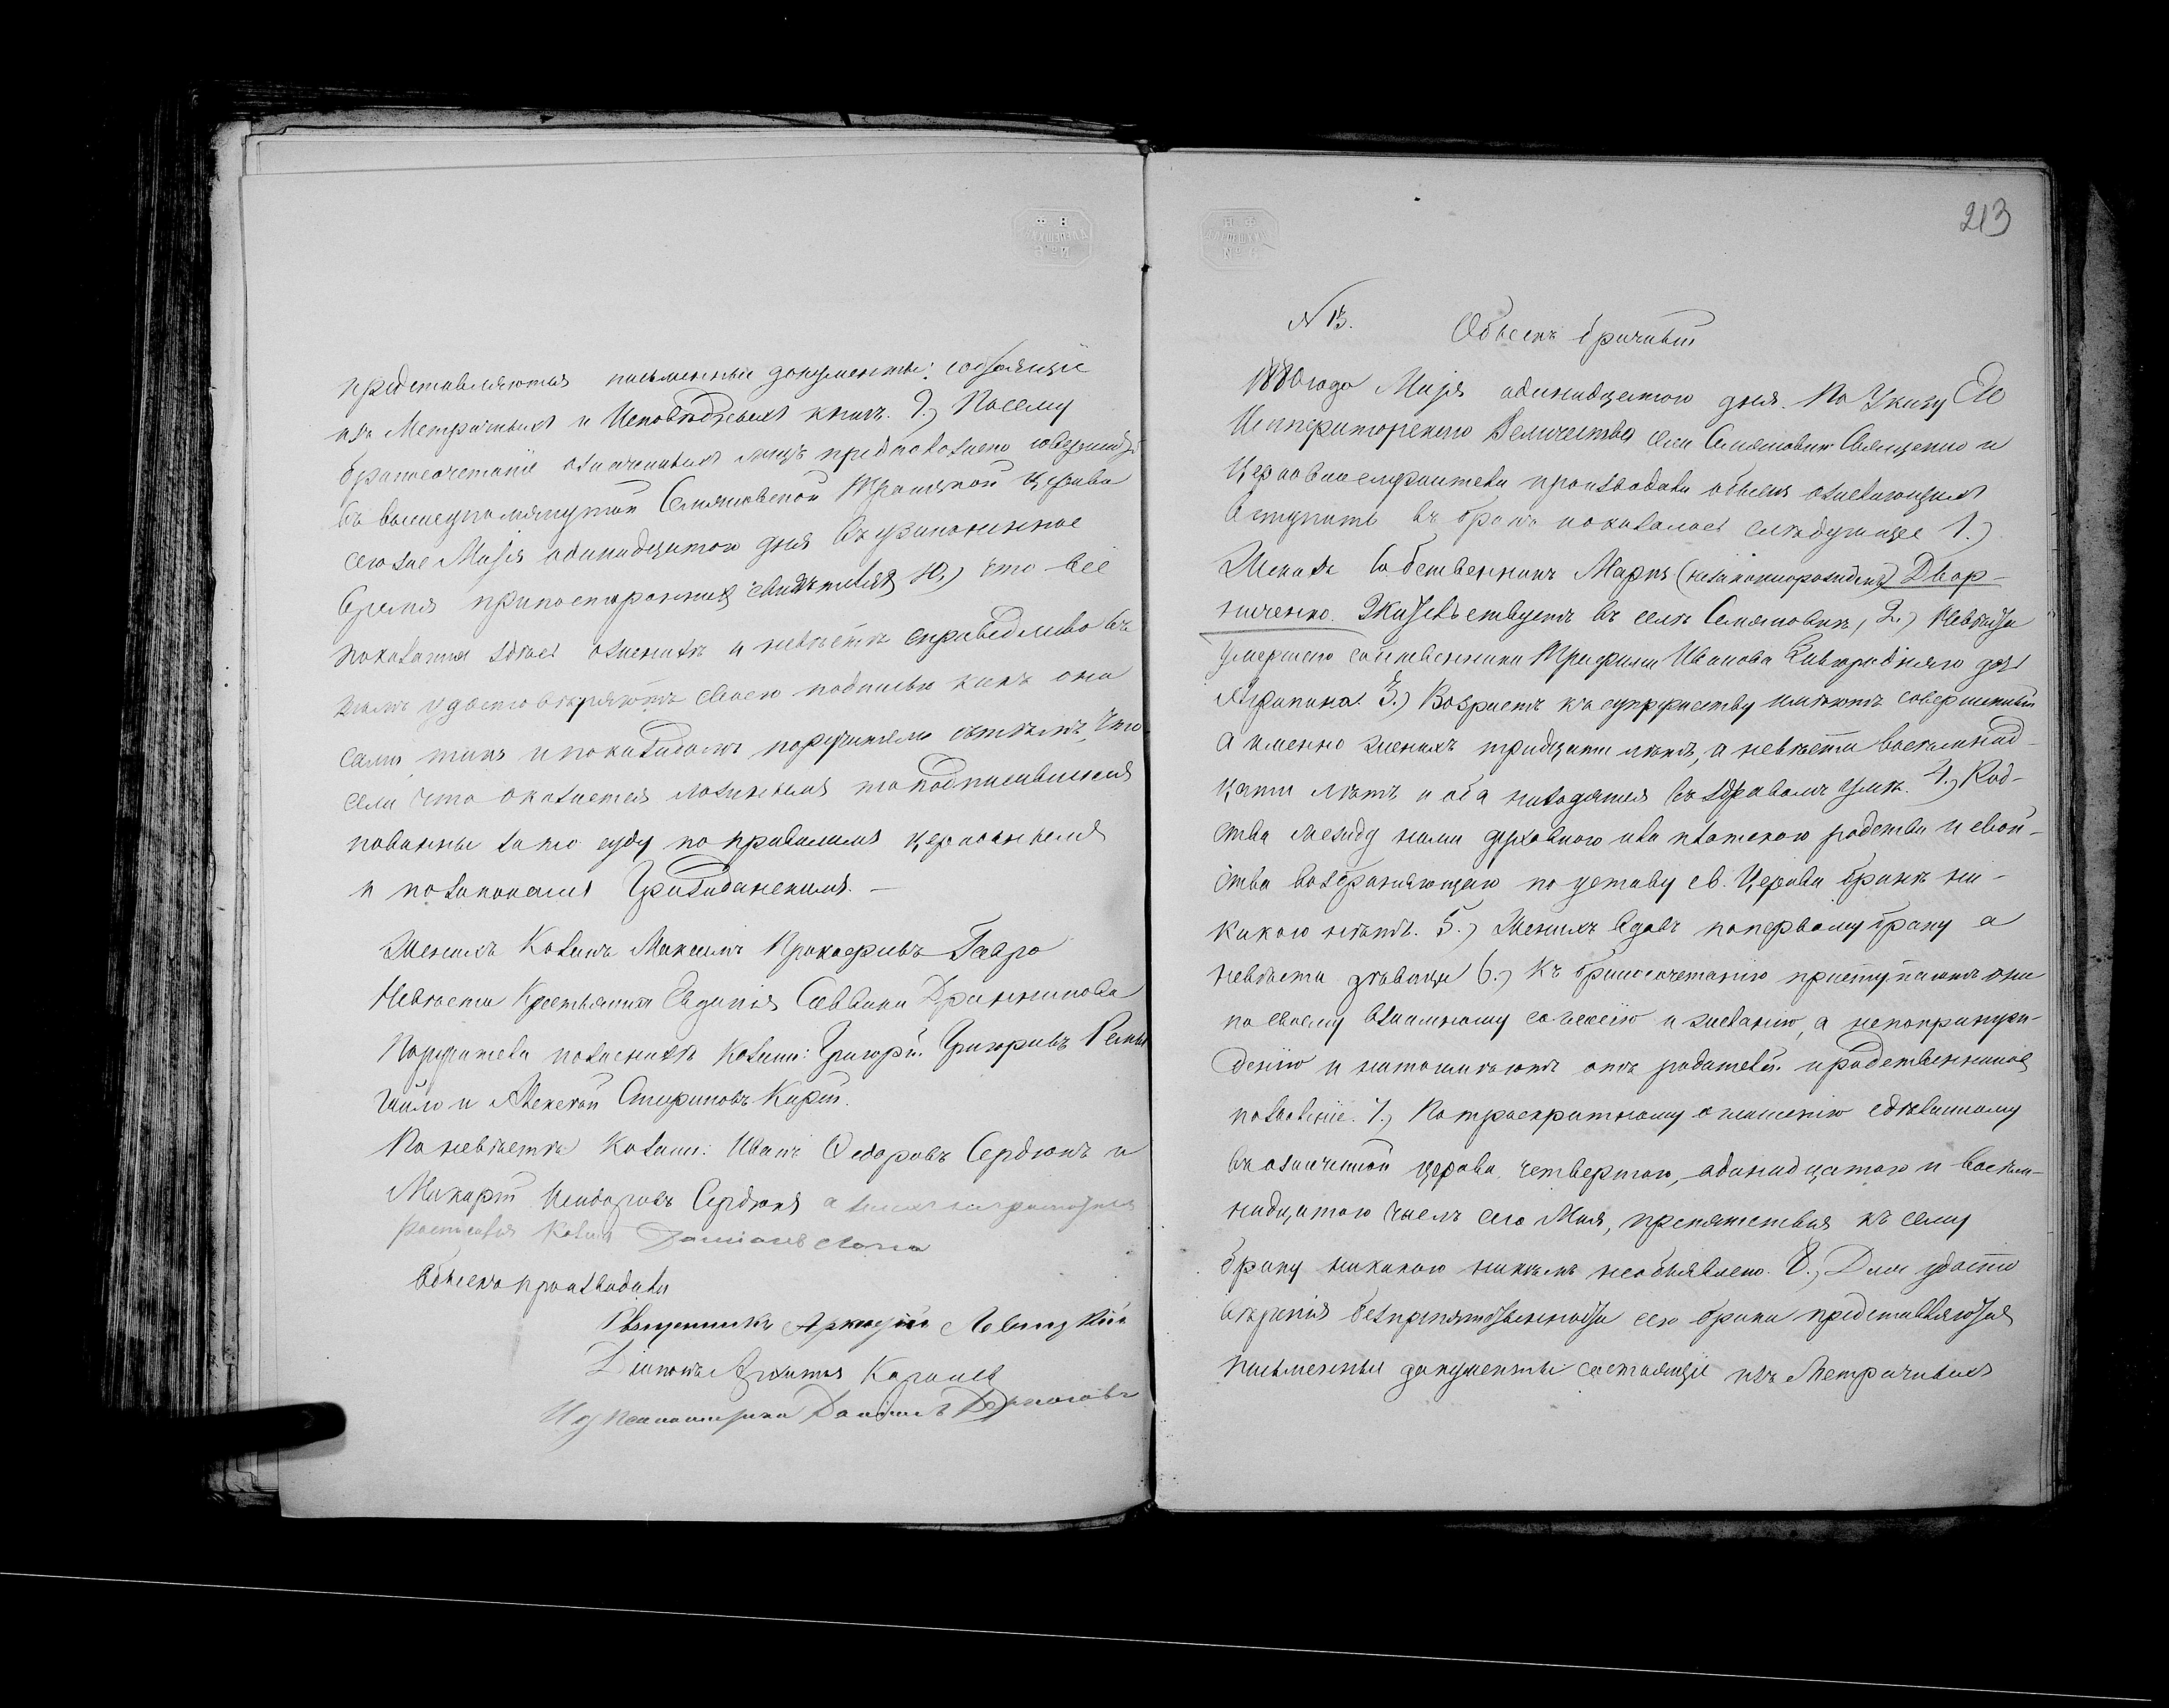 представляются письменные документы: состоящіе
изъ Метричныхъ и Исповѣдныхъ книгъ. 9.) Посему
бракосочетаніе означенныхъ лицъ предположено совершить
въ вышеупомянутой Семяновской Троицкой церкви
сего же Маія одинадцатого дня въ узаконенное
время при постороннихъ свидѣтеляхъ 10.) что все
показанное здѣсь о женихѣ и невѣстѣ справедливо въ
томъ удостовѣряютъ своею подписью какъ они
сами, такъ и по каждомъ поручители съ тѣмъ, что
если что окажется ложнымъ то подписавшіеся
повинны за то суду по правиламъ церковнымъ
и по законамъ Гражданскимъ. —
Женихъ Козакъ Максимъ Прокофіевъ Гавро
Невѣста Крестьянка Евдокія Саввина
Поручители по женихѣ козаки: Григорій Григоріевъ
и Алексѣй
По невѣстѣ козаки: Иванъ Федоровъ Сердюкъ и
Макарій Исидоровъ Сердюкъ а
козакъ
Обыскъ производили
Священникъ Аркадій Левицкій
Діаконъ
Псаломщика
213
N 13.
Обыскъ брачный
1880 года Маія одинадцатого дня. По Указу Его
Императорскаго Величества села Семяновки Священно и
Церковнослужители производили обыскъ о желающихъ
вступить въ бракъ и оказалось слѣдующее 1.)
Женихъ Собственникъ Маркъ (незаконнорожденъ) Двор-
ниченко. Жительствуетъ въ селѣ Семяновкѣ, 2.) Невѣста
умершего собственника Трифона Иванова дочь
Агрипина. 3.) Возрастъ къ супружеству имѣютъ совершенный
а именно женихъ тридцати лѣтъ, а невѣста восемнад-
цати лѣтъ и оба находятся въ здравомъ умѣ. 4.) Род-
ства между ними духовного или плотского родства и свой-
ства возбраняющаго по уставу св. Церкви бракъ ни-
какого нѣтъ. 5.) Женихъ вдовъ по первому браку а
невѣста дѣвица 6.) Къ бракосочетанію приступаютъ они
по своему взаимному согласію и желанію, а не по принуж-
денію и на то имѣютъ отъ родителей и родственниковъ
позволеніе. 7.) По троекратному оглашенію сдѣланному
въ означенной церкви четвертого, одинадцатого и восем-
надцатого числъ сего Мая, препятствія къ сему
браку никакого никѣмъ не объявлено. 8.) Для удосто
вѣренія безпрепятственности сего брака представляются
письменные документы состоящіе изъ Метричныхъ